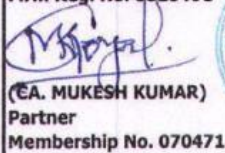 (CA. MUKESH KUMAR)
Partner
Membership No. 070471